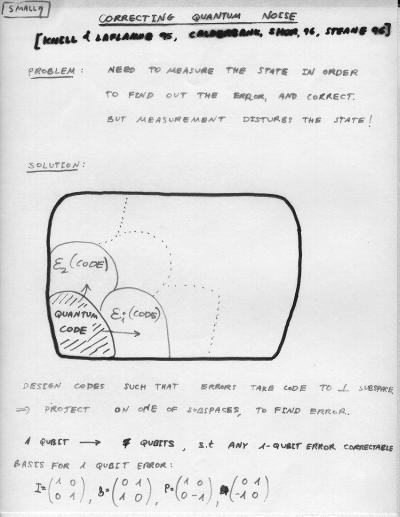 SMALL 9
CORRECTING QUANTUM NOISE
[KNILL & LAFLAMME 95, CALDERBANK, SHOR, 96, STEANE 96]
PROBLEM: NEED TO MEASURE THE STATE IN ORDER
TO FIND OUT THE ERROR, AND CORRECT.
BUT MEASUREMENT DISTURBS THE STATE!
SOLUTION:
ε₂(CODE)
εᵢ(CODE)
QUANTUM
CODE
DESIGN CODES SUCH THAT ERRORS TAKE CODE TO ⊥ SUBSPACE
⇒ PROJECT ON ONE OF SUBSPACES, TO FIND ERROR.
1 QUBIT → QUBITS, s.t ANY 1-QUBIT ERROR CORRECTABLE
BASIS FOR 1 QUBIT ERROR:
I=(1 0
0 1), B=(0 1
1 0), P=(1 0
0 -1), (0 1
-1 0)